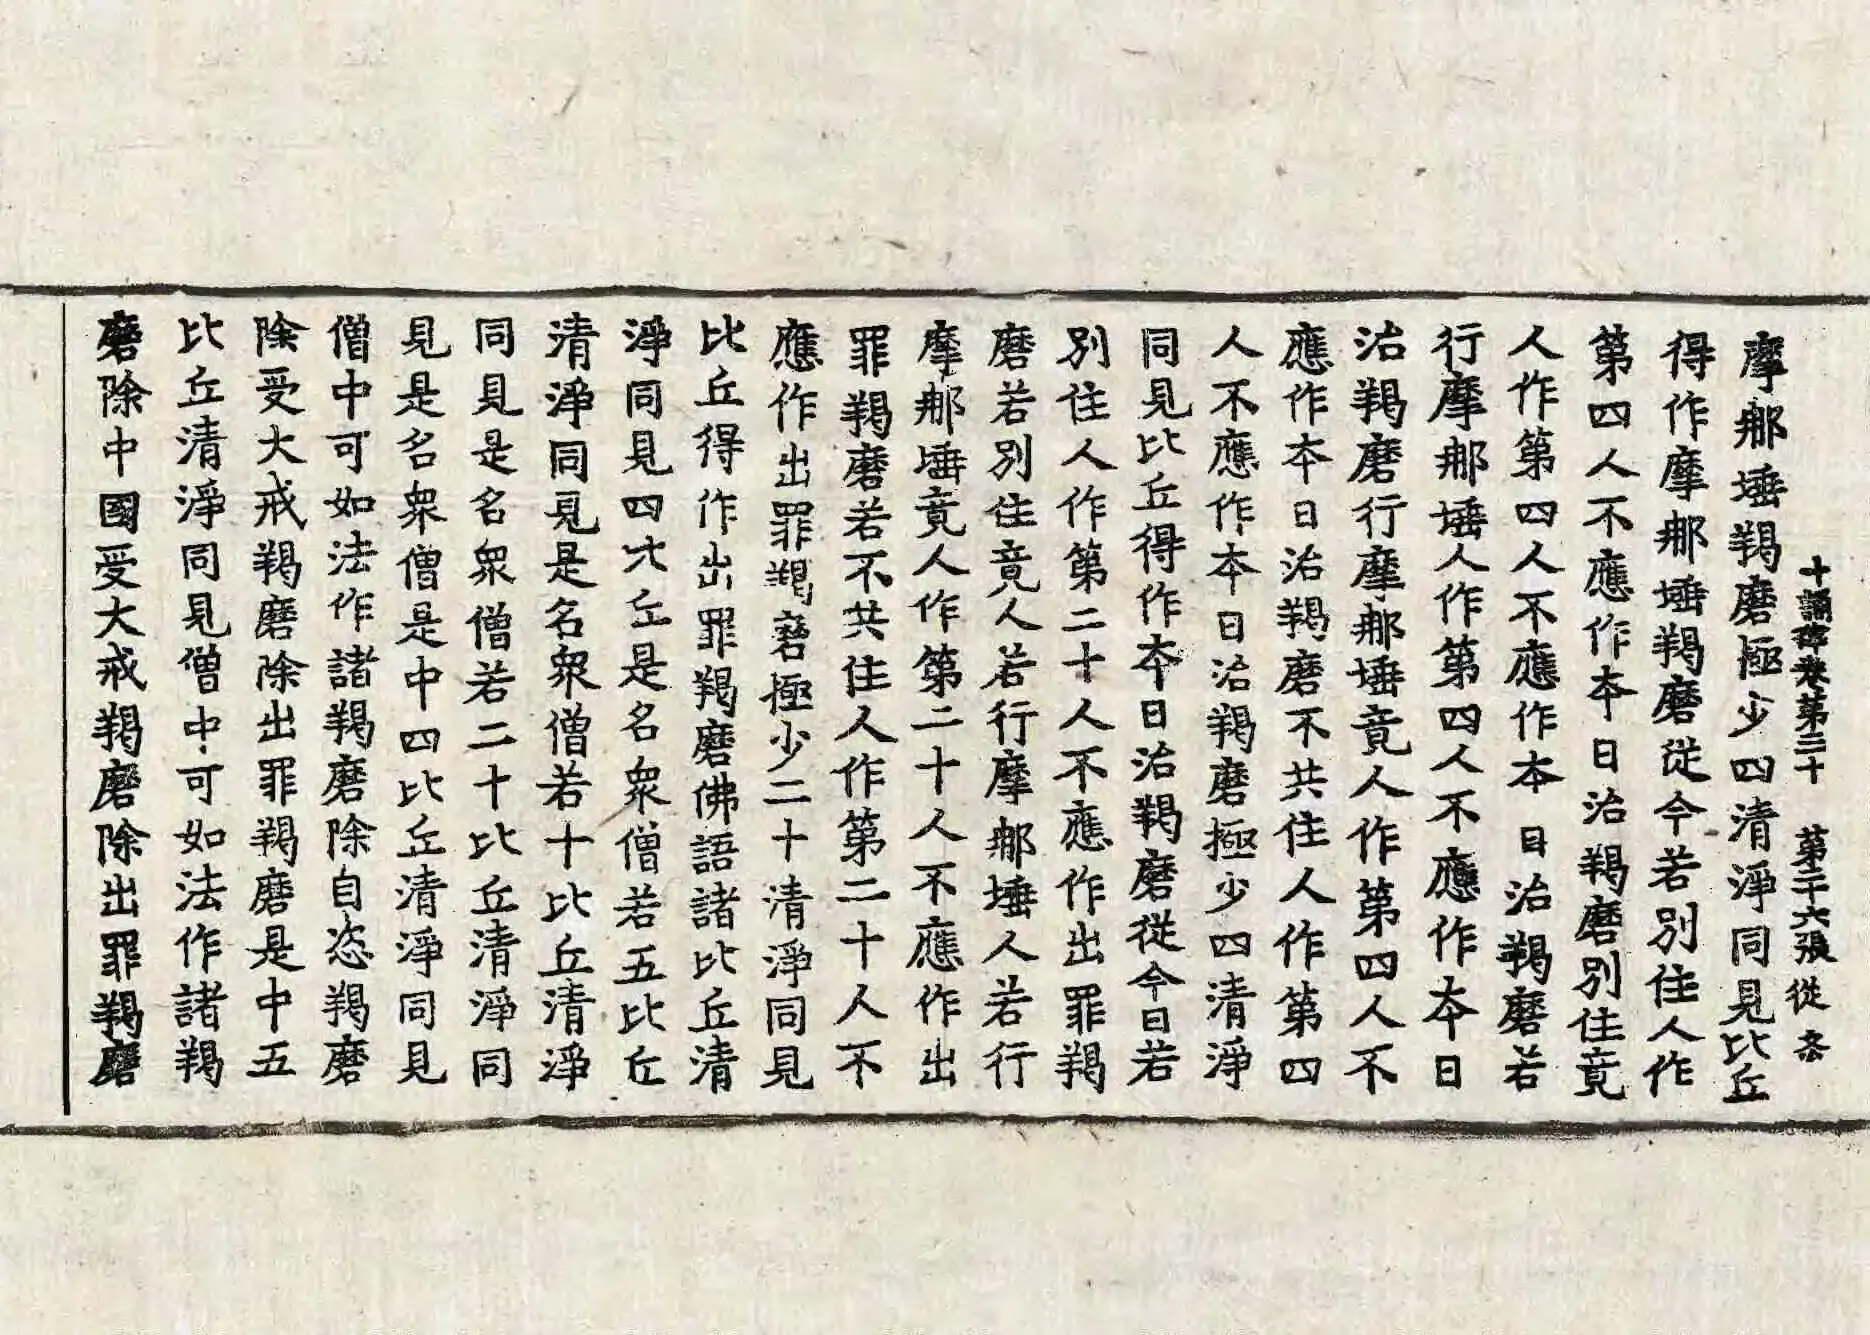 十誦律卷第三十　第二十六張　從　夅
摩那埵羯磨極少四清淨同見比丘
得作摩那埵羯磨從今若別住人作
第四人不應作本日治羯磨別住竟
人作第四人不應作本日治羯磨若
行摩那埵人作第四人不應作本日
治羯磨行摩那埵竟人作第四人不
應作本日治羯磨不共住人作第四
人不應作本日治羯磨極少四清淨
同見比丘得作本日治羯磨從今日若
別住人作第二十人不應作出罪羯
磨若別住竟人若行摩那埵人若行
摩那埵竟人作第二十人不應作出
罪羯磨若不共住人作第二十人不
應作出罪羯磨極少二十清淨同見
比丘得作出罪羯磨佛語諸比丘清
淨同見四比丘是名眾僧若五比丘
清淨同見是名眾僧若十比丘清淨
同見是名眾僧若二十比丘清淨同
見是名眾僧是中四比丘清淨同見
僧中可如法作諸羯磨除自恣羯磨
除受大戒羯磨除出罪羯磨是中五
比丘清淨同見僧中可如法作諸羯
磨除中國受大戒羯磨除出罪羯磨